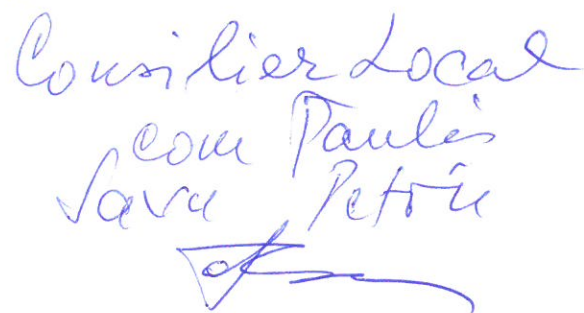 Consilier Local
com Pauliș
Savu Petru